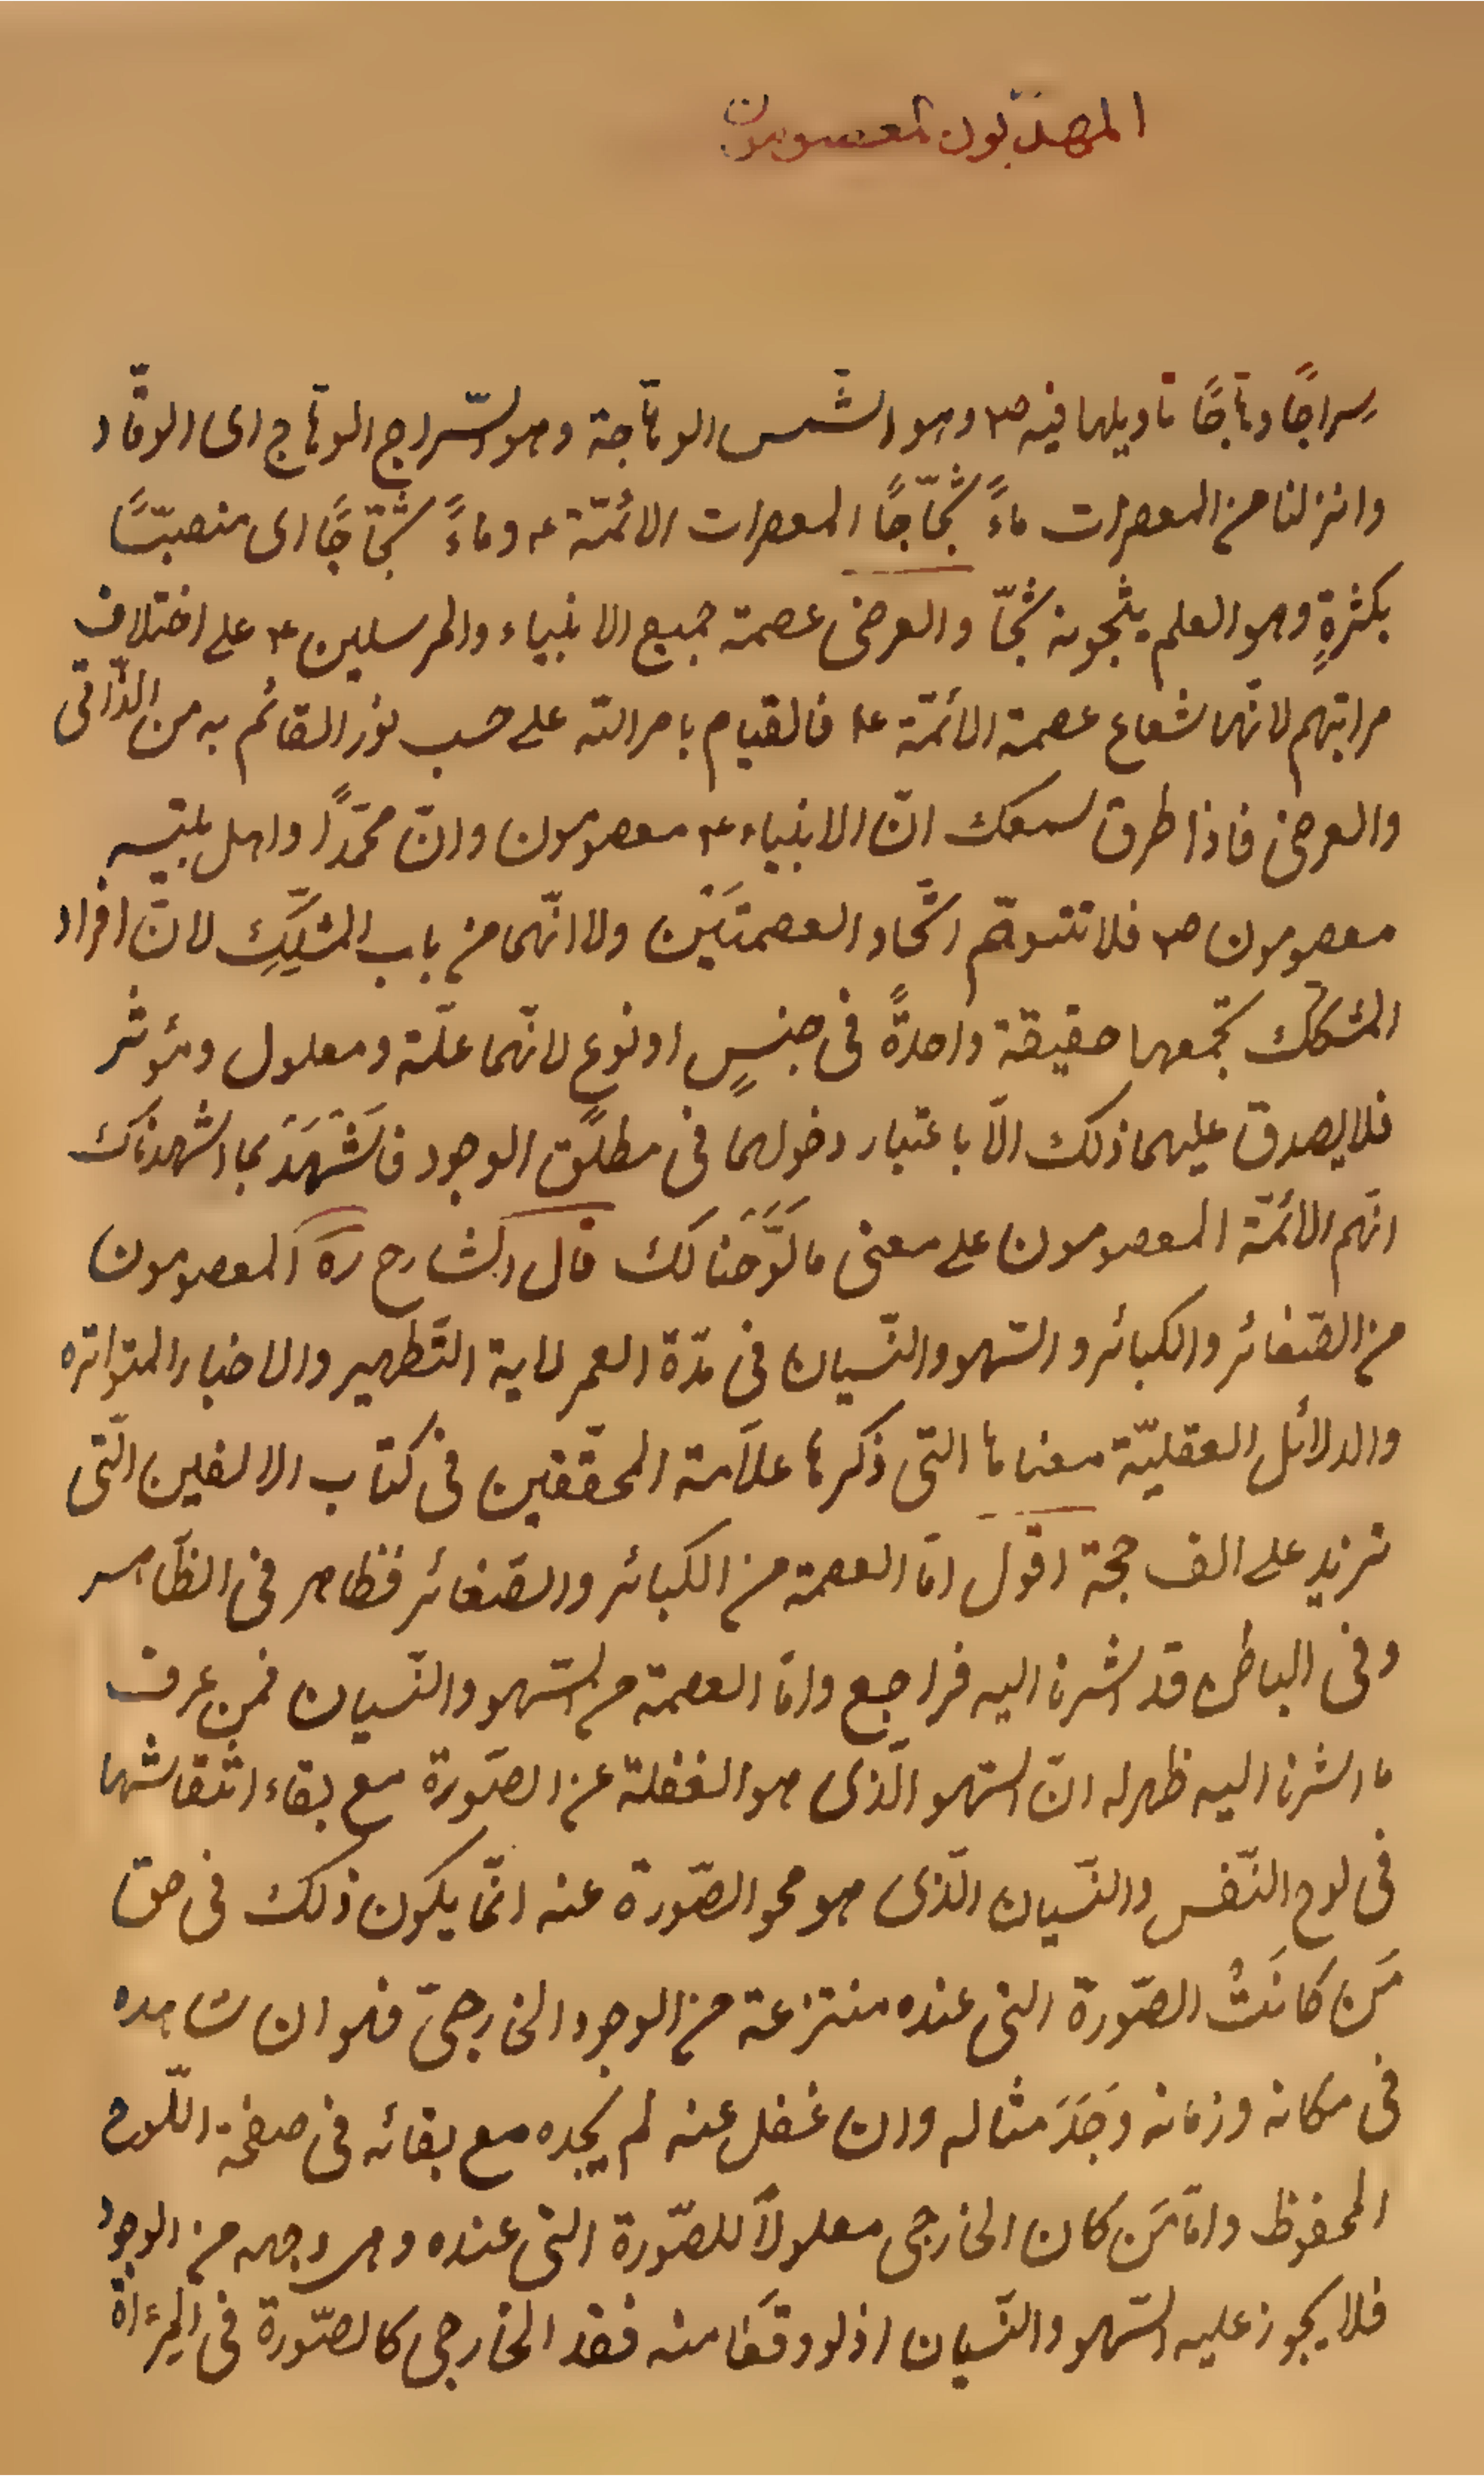 المهذبون معصومون
سراجًا وهّاجًا تاويلها فيه ص۴ وهو الشّمس الوهّاجة وهو السّراج الوهّاج اى الوقّاد
وانزلنا من المعصرات ماءً ثجّاجًا المعصرات الائمّة ع۴ وماءً ثجّاجًا اى منصبّبًا
بكثرةٍ وهو العلم يثجونه ثجّا والعرضى عصمة جميع الانبياء والمرسلين ع۴ على اختلاف
مراتبهم لانّها شعاع عصمة الائمّة ع۴ فالقيام بامر الله على حسب نور القائم به من الذّاتى
والعرضى فاذا طرق سمعك انّ الانبياء ع۴ معصومون وانّ محمّدًا واهل بيته
معصومون ص۴ فلا تتوهّم اتّحاد العصمتَيْن ولا انّهما من باب المشكِّكِ لانّ افراد
المشكّك تجمعها حقيقة واحدةً فى جنسٍ او نوع لانّهما علّة ومعلول ومؤثر
فلا يصدق عليهما ذلك الّا باعتبار دخولهما فى مطلق الوجود فاَشْهَدَ بما اشهدناك
انّهم الائمّة المعصومون على معنى ما لَوَّحْنا لك قال الشارح ره المعصومون
من الصّغائر والكبائر والسّهو والنّسيان فى مدّة العمر لاية التّطهير والاخبار المتواتره
والدلائل العقليّة معناها التى ذكرها علاّمة المحقّقين فى كتاب الالفين الّتى
تزيد على الف حجة اقول امّا العصمة من الكبائر والصّغائر فظاهر فى الظّاهر
وفى الباطن قد اشرنا اليه فراجع وامّا العصمة من السّهو والنّسيان فمن عرف
ما اشرنا اليه ظهر له انّ السّهو الّذى هو الغفلة عن الصّورة مع بقاء انتقاشها
فى لوح النّفس والنّسيان الّذى هو محو الصّورة عنه انّما يكون ذلك فى حقّ
مَن كانَتْ الصّورة التى عنده منتزعة من الوجود الخارجىّ فهو ان شاهده
فى مكانه وزمانه وَجَدَ مثاله وان غفل عنه لم يجده مع بقائه فى صفحة اللّوح
المحفوظ وامّا مَن كان الخارجى معلولاً للصّورة التى عنده وهى وجهه من الوجود
فلا يجوز عليه السّهو والنّسيان اذ لو وقعَا منه فقد الخارجى كالصّورة فى المِرْءاة